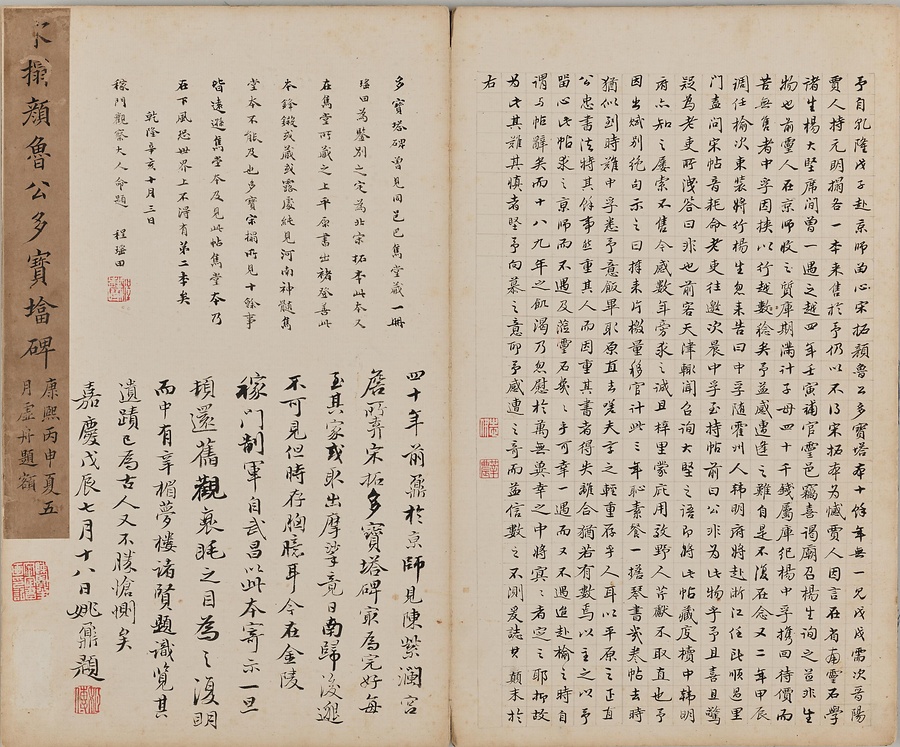 予自乳隆戊子赴京師留心宋拓顔魯公多寶塔本十餘年無一見戊戌需次晉陽
賈人持元明搨各一本来售於予仍以不得宋拓本為憾賈人因言在省南靈石學
諸生楊大堅席間曾一遇之越四年壬寅補官靈邑竊喜謁廟召楊生詢之茍非生
物也前靈人在京師收之質庫期滿計子母四十千錢屬庫纪楊中孚携回待價而
苦無售者中孚因挟以行越數稔矣予益感遭逢之難自是不復在念又二年甲辰
調任榆次束装将行楊生忽来告曰中孚随霍州人韩明府将赴浙江任此順邑里
門盍問宋帖音耗命老吏往邀次晨中孚至持帖前曰公非為此物乎予且喜且驚
疑為老吏所洩答曰非也前客天津輒聞召詢大堅之語即将此帖藏度櫝中韩明
府六知之屡索不售今感數年旁求之誠且梓里蒙庇用效野人芹獻不取直也予
因出贐别绝句示之曰擇来片檄量移官計此三年恥素餐一擔琴書幾卷帖去時
猶似到時難中孚悉予意飯畢取原直去嗟夫字之輕重存乎人耳以平原之正直
公忠書法特其餘事然重其人而因重其書者得失離合猶若有數焉以主之以予
留心此帖求之京師而不遇及蒞靈石矣之子可幸一遇而又不遇迨赴榆之時自
謂与帖辭矣而十八九年之飢渴乃忽慰於萬無冀幸之中将冥之者定之耶抑故
為此其難其慎者堅予向慕之意耶予感遭之奇而益信數之不測爰誌其顛末於
右
多寶塔碑曽見同邑巴雋堂蔵一冊
瑶田為鑒别之定為北宋拓本此本又
在雋堂所蔵之上平原書出褚登善此
本鋒鍛或蔵或露處純見河南神髓雋
堂本不能及也多寶宋搨所見十餘事
皆遠遜雋堂本及見此帖雋堂本乃
在下風恐世界上不淂有第二本矣
乾隆辛亥十月三日
稼門觀察大人命題 程瑶田
四十年前鼐於京師見陳紫瀾宫
詹所弆宋拓多寶塔碑最為完好每
至其家或取出摩挲竟日南歸後邈
不可見但時存胸臆耳今在金陵
稼門制軍自武昌以此本寄示一旦
頓還舊觀衰眊之目為之復明
而中有辛楣夢樓諸賢題識覧其
遺蹟已為古人又不勝愴惻矣
嘉慶戊辰七月十八日姚鼐題
宋搨顔魯公多寶塔碑
康熙丙申夏五
月虚舟題額